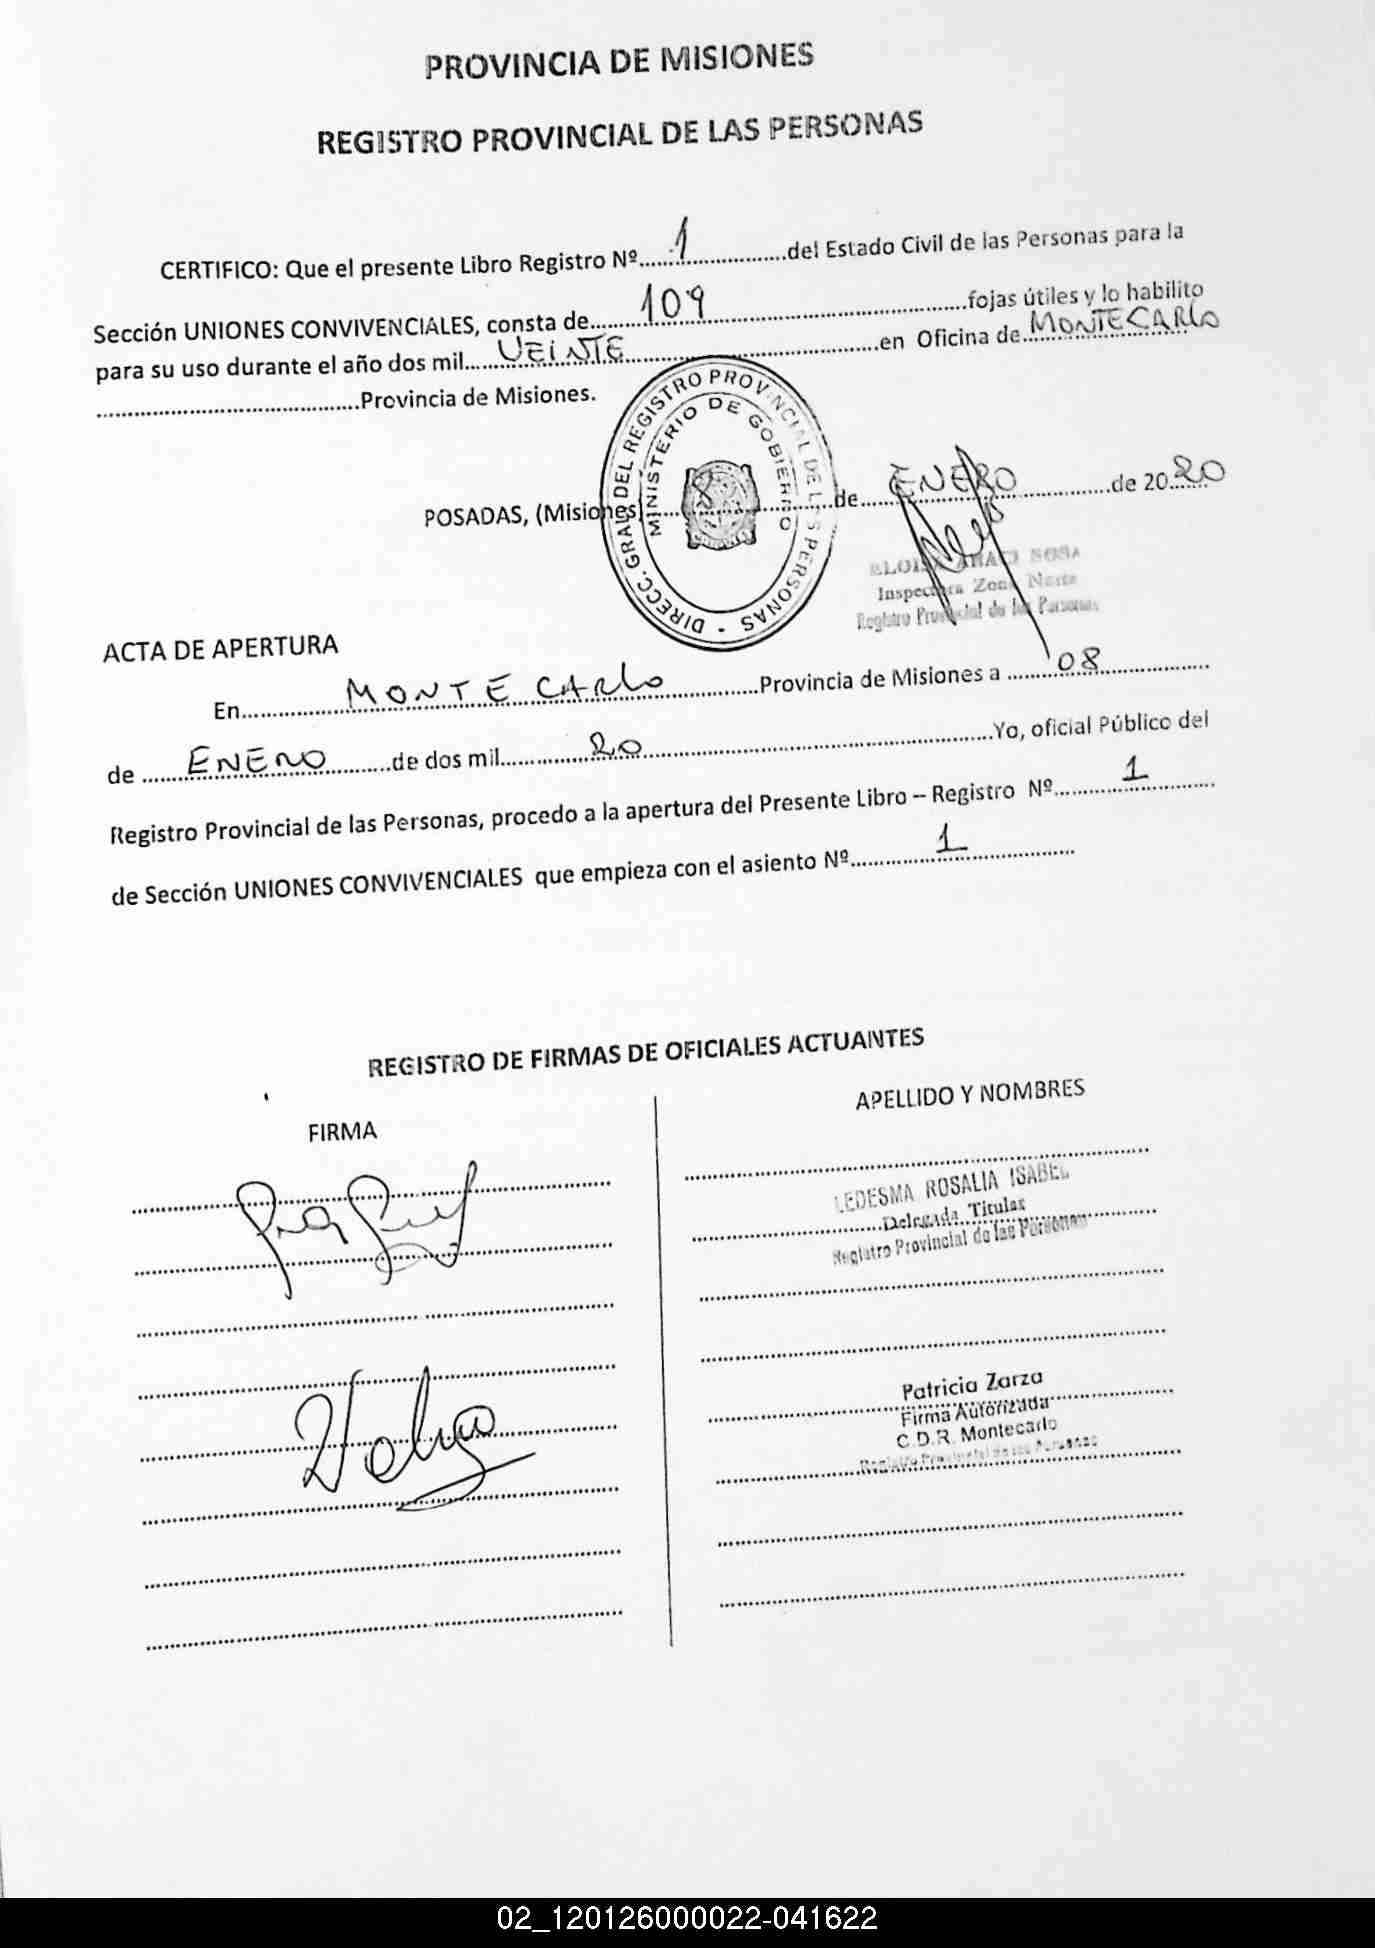 PROVINCIA DE MISIONES
REGISTRO PROVINCIAL DE LAS PERSONAS
CERTIFICO: Que el presente Libro Registro Nº.....1.....del Estado Civil de las Personas para la
Sección UNIONES CONVIVENCIALES, consta de.....109.....fojas útiles y lo habilito
para su uso durante el año dos mil.....VEINTE.....en Oficina de.....MONTECARLO
.....Provincia de Misiones.
DIRECC. GRAL. DEL REGISTRO PROVINCIAL DE LAS PERSONAS -
MINISTERIO DE GOBIERNO
POSADAS, (Misiones).....8.....de.....ENERO.....de 2020
ELOISA ARACI SOSA
Inspectora Zona Norte
Registro Provincial de las Personas
ACTA DE APERTURA
En.....MONTECARLO.....Provincia de Misiones a.....08.....
de.....ENERO.....de dos mil.....20.....Yo, oficial Público del
Registro Provincial de las Personas, procedo a la apertura del Presente Libro – Registro Nº.....1.....
de Sección UNIONES CONVIVENCIALES que empieza con el asiento Nº.....1.....
REGISTRO DE FIRMAS DE OFICIALES ACTUANTES
FIRMA
APELLIDO Y NOMBRES
LEDESMA ROSALIA ISABEL
Delegada Titular
Registro Provincial de las Personas
Patricia Zarza
Firma Autorizada
C.D.R. Montecarlo
Registro Provincial de las Personas
02_120126000022-041622